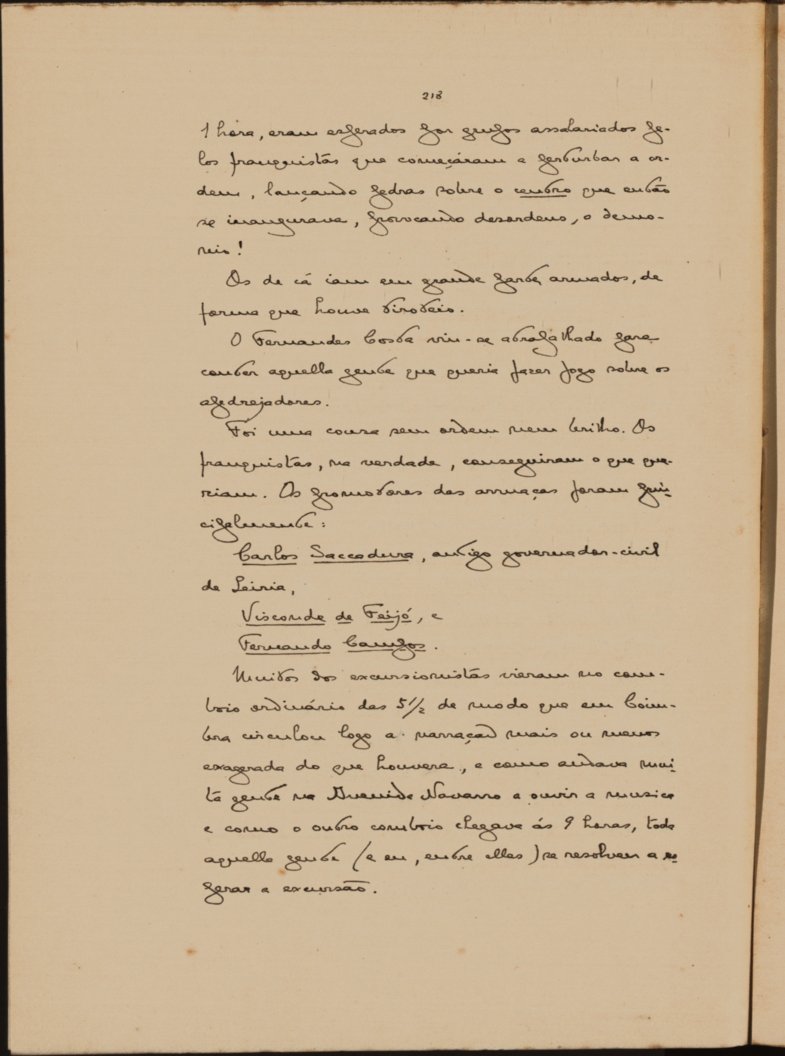 218
1 hora, eram esperados por grupos assalariados pe-
los franquistas que começáram a perturbar a or-
dem, lançando pedras sobre o centro que então
se inaugurava, provocando desordens, o demo-
nio!
Os de cá iam em grande parte, armados, de
forma que houve tiroteio.
O Fernandes Costa viu-se atrapalhado para
conter aquella gente que queria fazer fogo sobre os
apedrejadores.
Foi uma cousa sem ordem nem brilho. Os
franquistas, na verdade, conseguiram o que que-
riam. Os promotores das arruaças foram prin-
cipalmente:
Carlos Saccadura, antigo governador-civil
de Leiria,
Visconde de Feijó, e
Fernando Campos.
Muitos dos excursionistas vieram no com-
boio ordinário das 5 1/2 de modo que em Coim-
bra circulou logo a narração mais ou menos
exagerada do que houvera, e como andava mui-
ta gente na Avenida Navarro a ouvir a musica
e como o outro comboio chegava ás 9 horas, toda
aquella gente (e eu, entre elles) se resolveu a es-
perar a excursão.